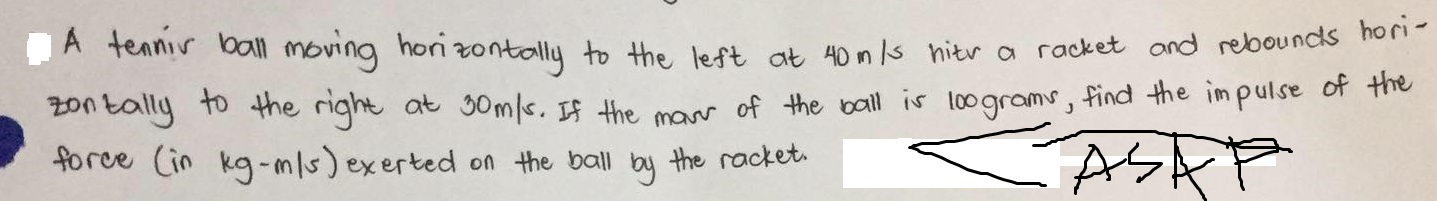 A tennis ball moving horizontally to the left at 40 m/s hits a racket and rebounds hori-
zontally to the right at 30m/s. If the mass of the ball is 100grams, find the impulse of the
force (in kg-m/s) exerted on the ball by the racket.
ASAP